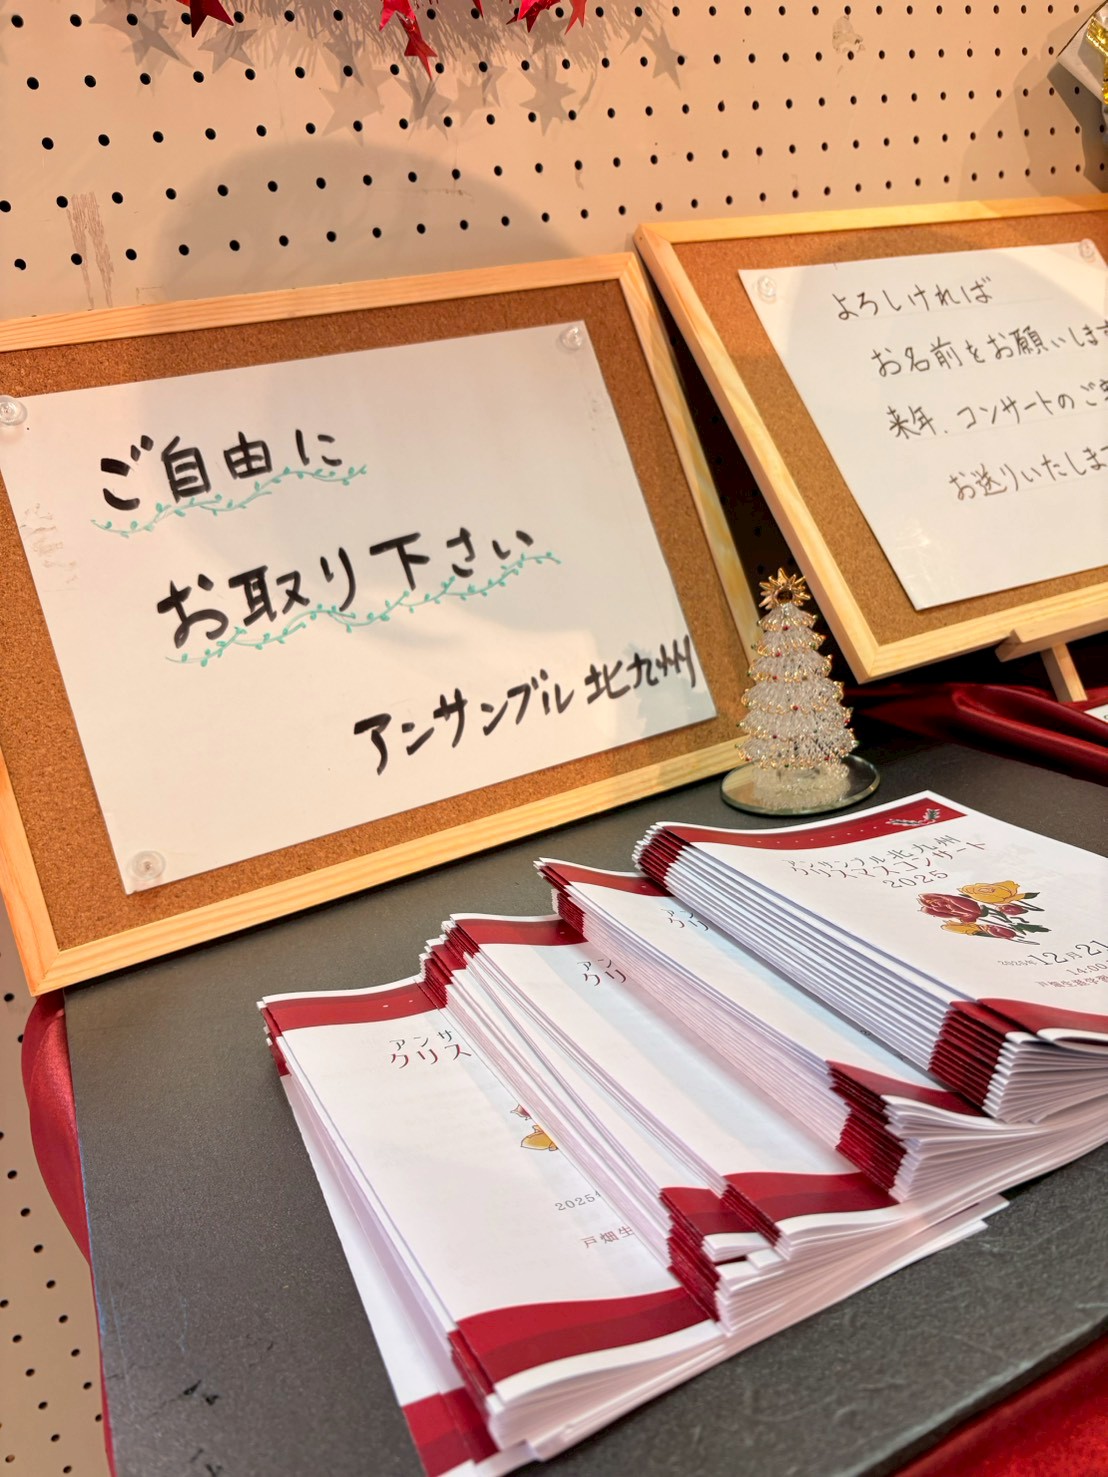 ご自由に
お取り下さい
アンサンブル北九州
よろしければ
お名前をお願いします
来年、コンサートのご
お送りいたします
アンサンブル北九州
クリスマスコンサート
2025
2025年12月21
14:00
戸畑生涯学習
アン
クリ
アン
クリ
アンサ
クリス
2025年
戸畑生